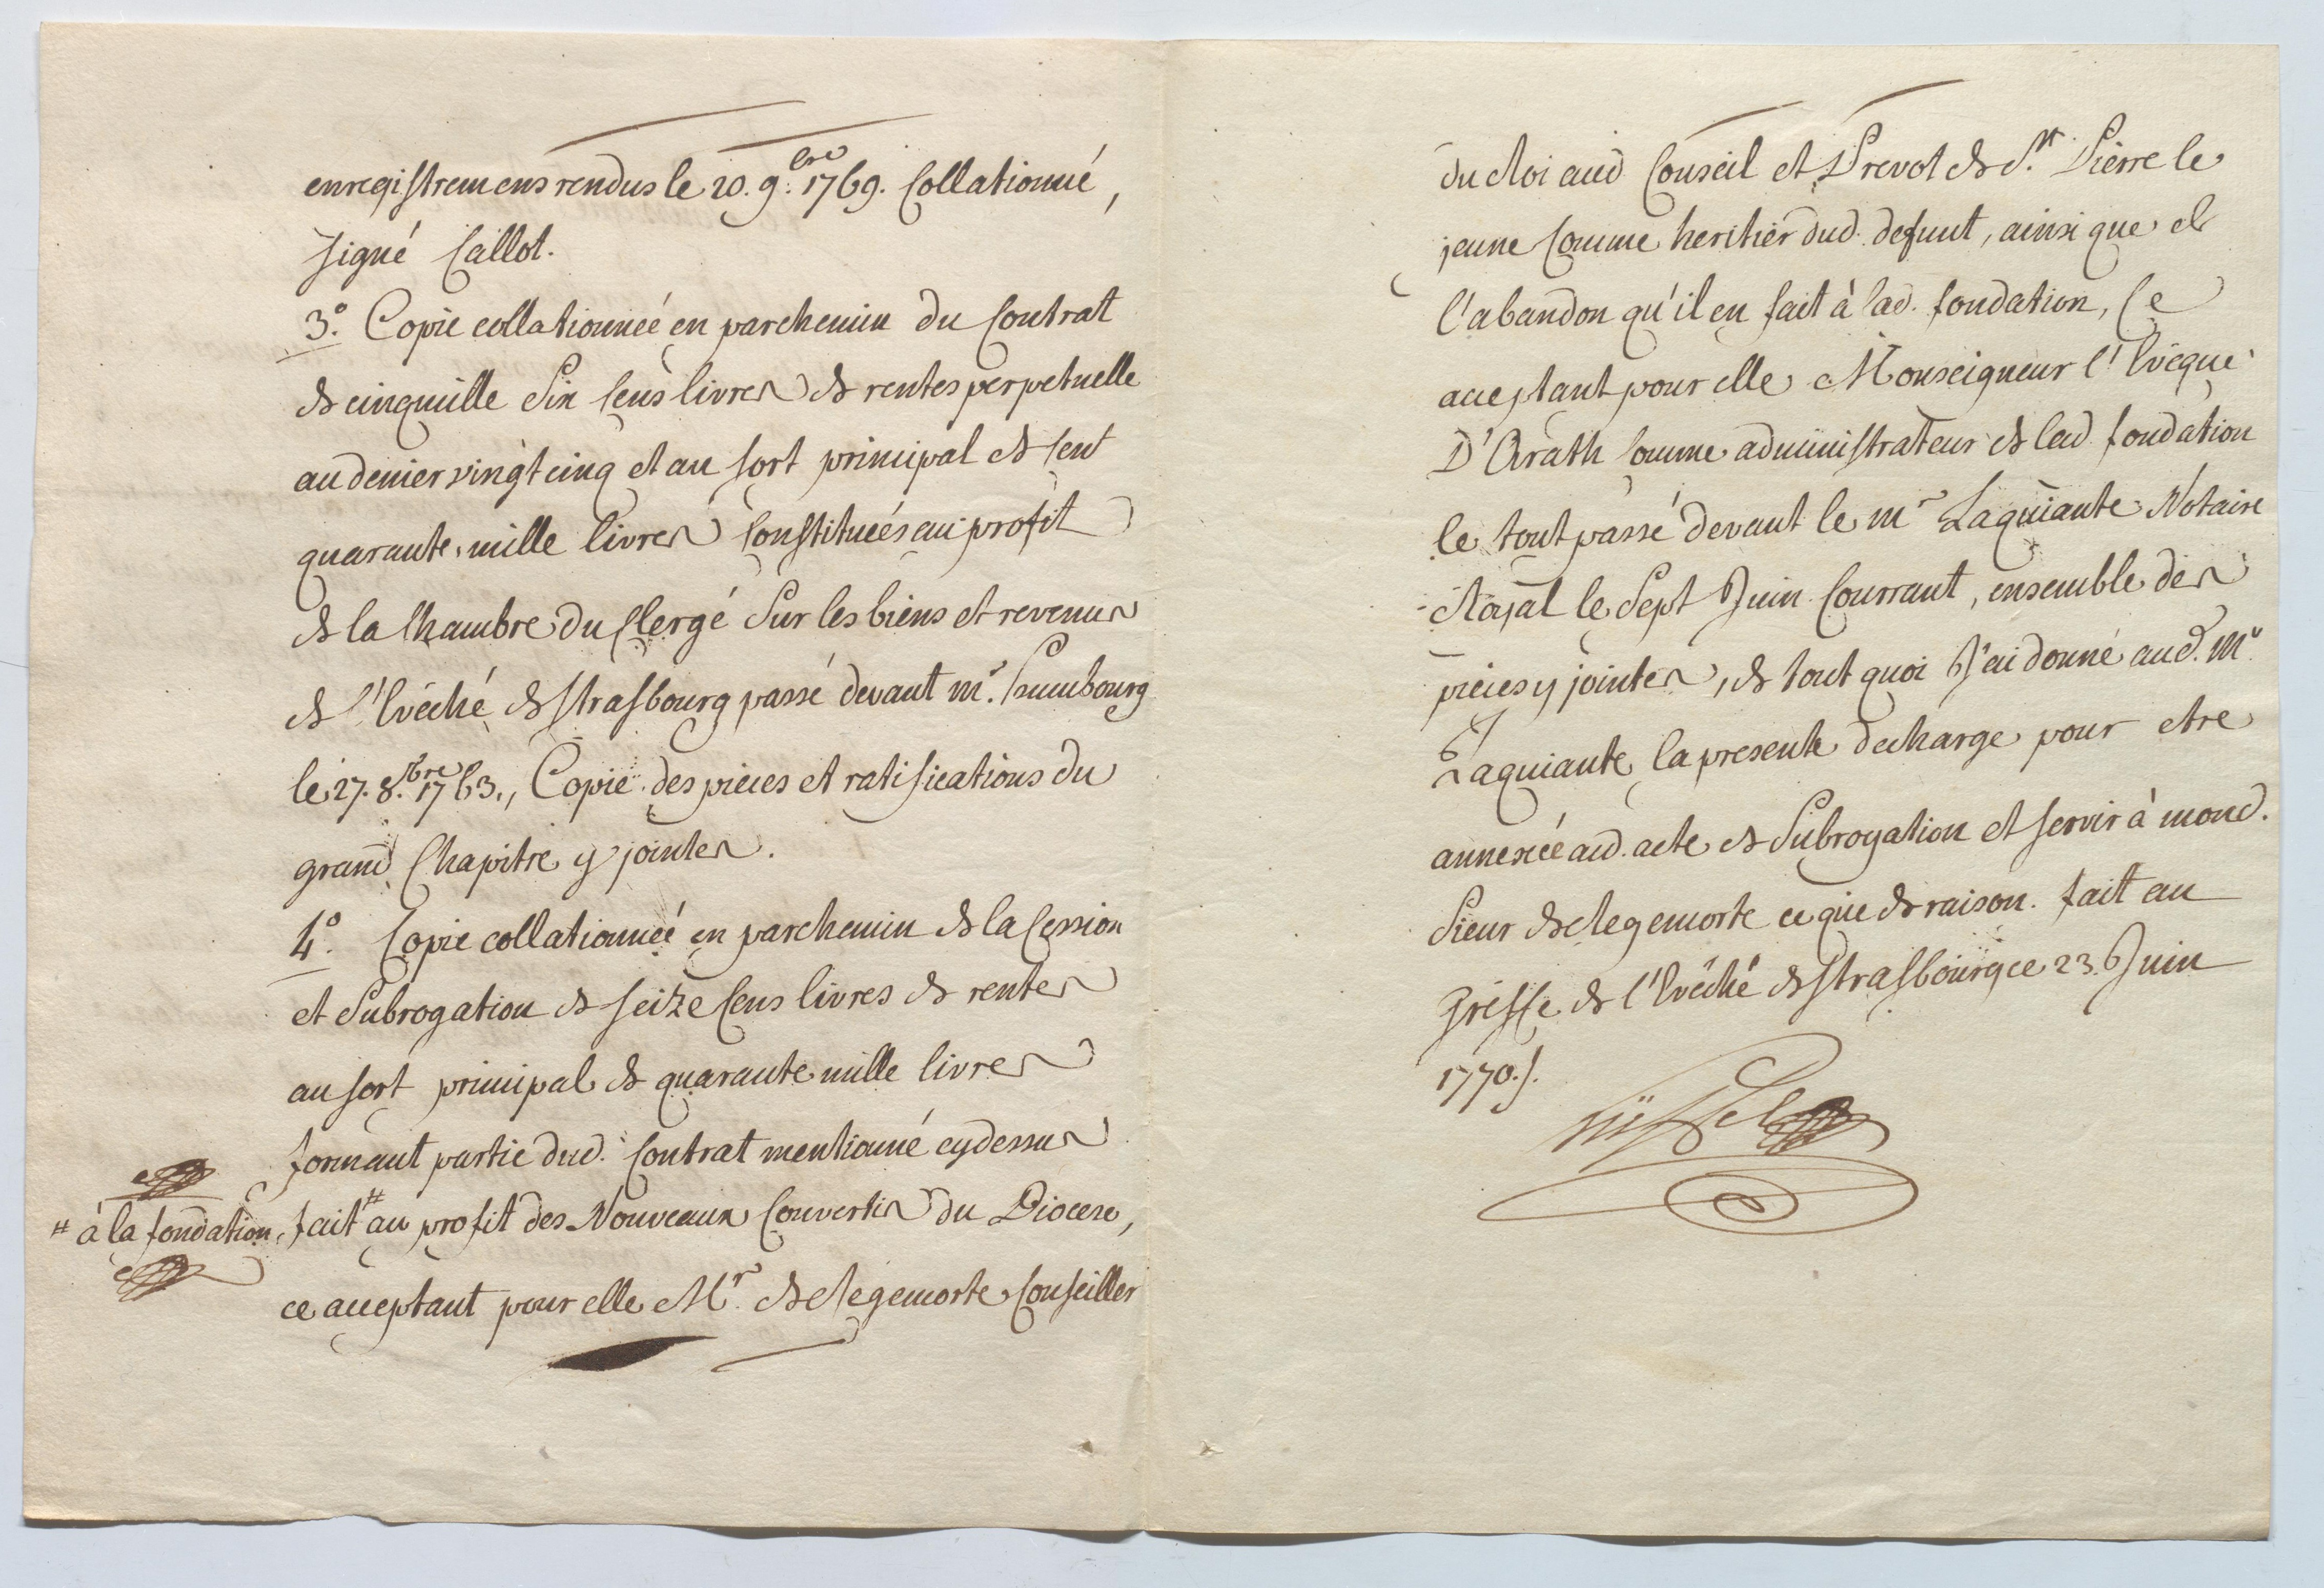 enregistremens rendus le 20. 9.bre 1769. Collationné,
signé Callot.
3°. Copie collationnée en parchemin du Contrat
de cinqmille Six Cens livres de rentes perpetuelle
au denier vingt cinq et au sort principal de Cent
quarante mille livres Constituées au profit
de la Chambre du Clergé Sur les biens et revenus
de l'Evêché de Strasbourg passé devant mr.
le 27. 8.bre 1763., Copie des pieces et ratifications du
grand Chapitre y jointes.
4°. Copie collationnée en parchemin de la Cession
et Subrogation de seize Cens livres de rentes
au sort principal de quarante mille livres
formant partie dud. Contrat mentionné cydessus
fait # au profit des Nouveaux Convertis du Diocese,
# à la fondation
ce acceptant pour elle Mr. de Regemorte Conseiller
du Roi aud Conseil et Prevot de St. Pierre le
jeune Comme heritier dud. defunt, ainsi que de
l'abandon qu'il en fait à lad. fondation, Ce
acceptant pour elle Monseigneur l'Evêque
D'Arath Comme administrateur de lad fondation
le tout passé devant le mr Laquiante Notaire
Royal le Sept Juin Courrant, ensemble des
pieces y jointes, de tout quoi J'ai donné aud. Mr.
Laquiante la presente decharge pour etre
annexée aud. acte de Subrogation et servir à mond.
Sieur de Regemorte ce que de raison. fait au
Greffe de l'Evêché de Strasbourg ce 23. Juin
1770./.